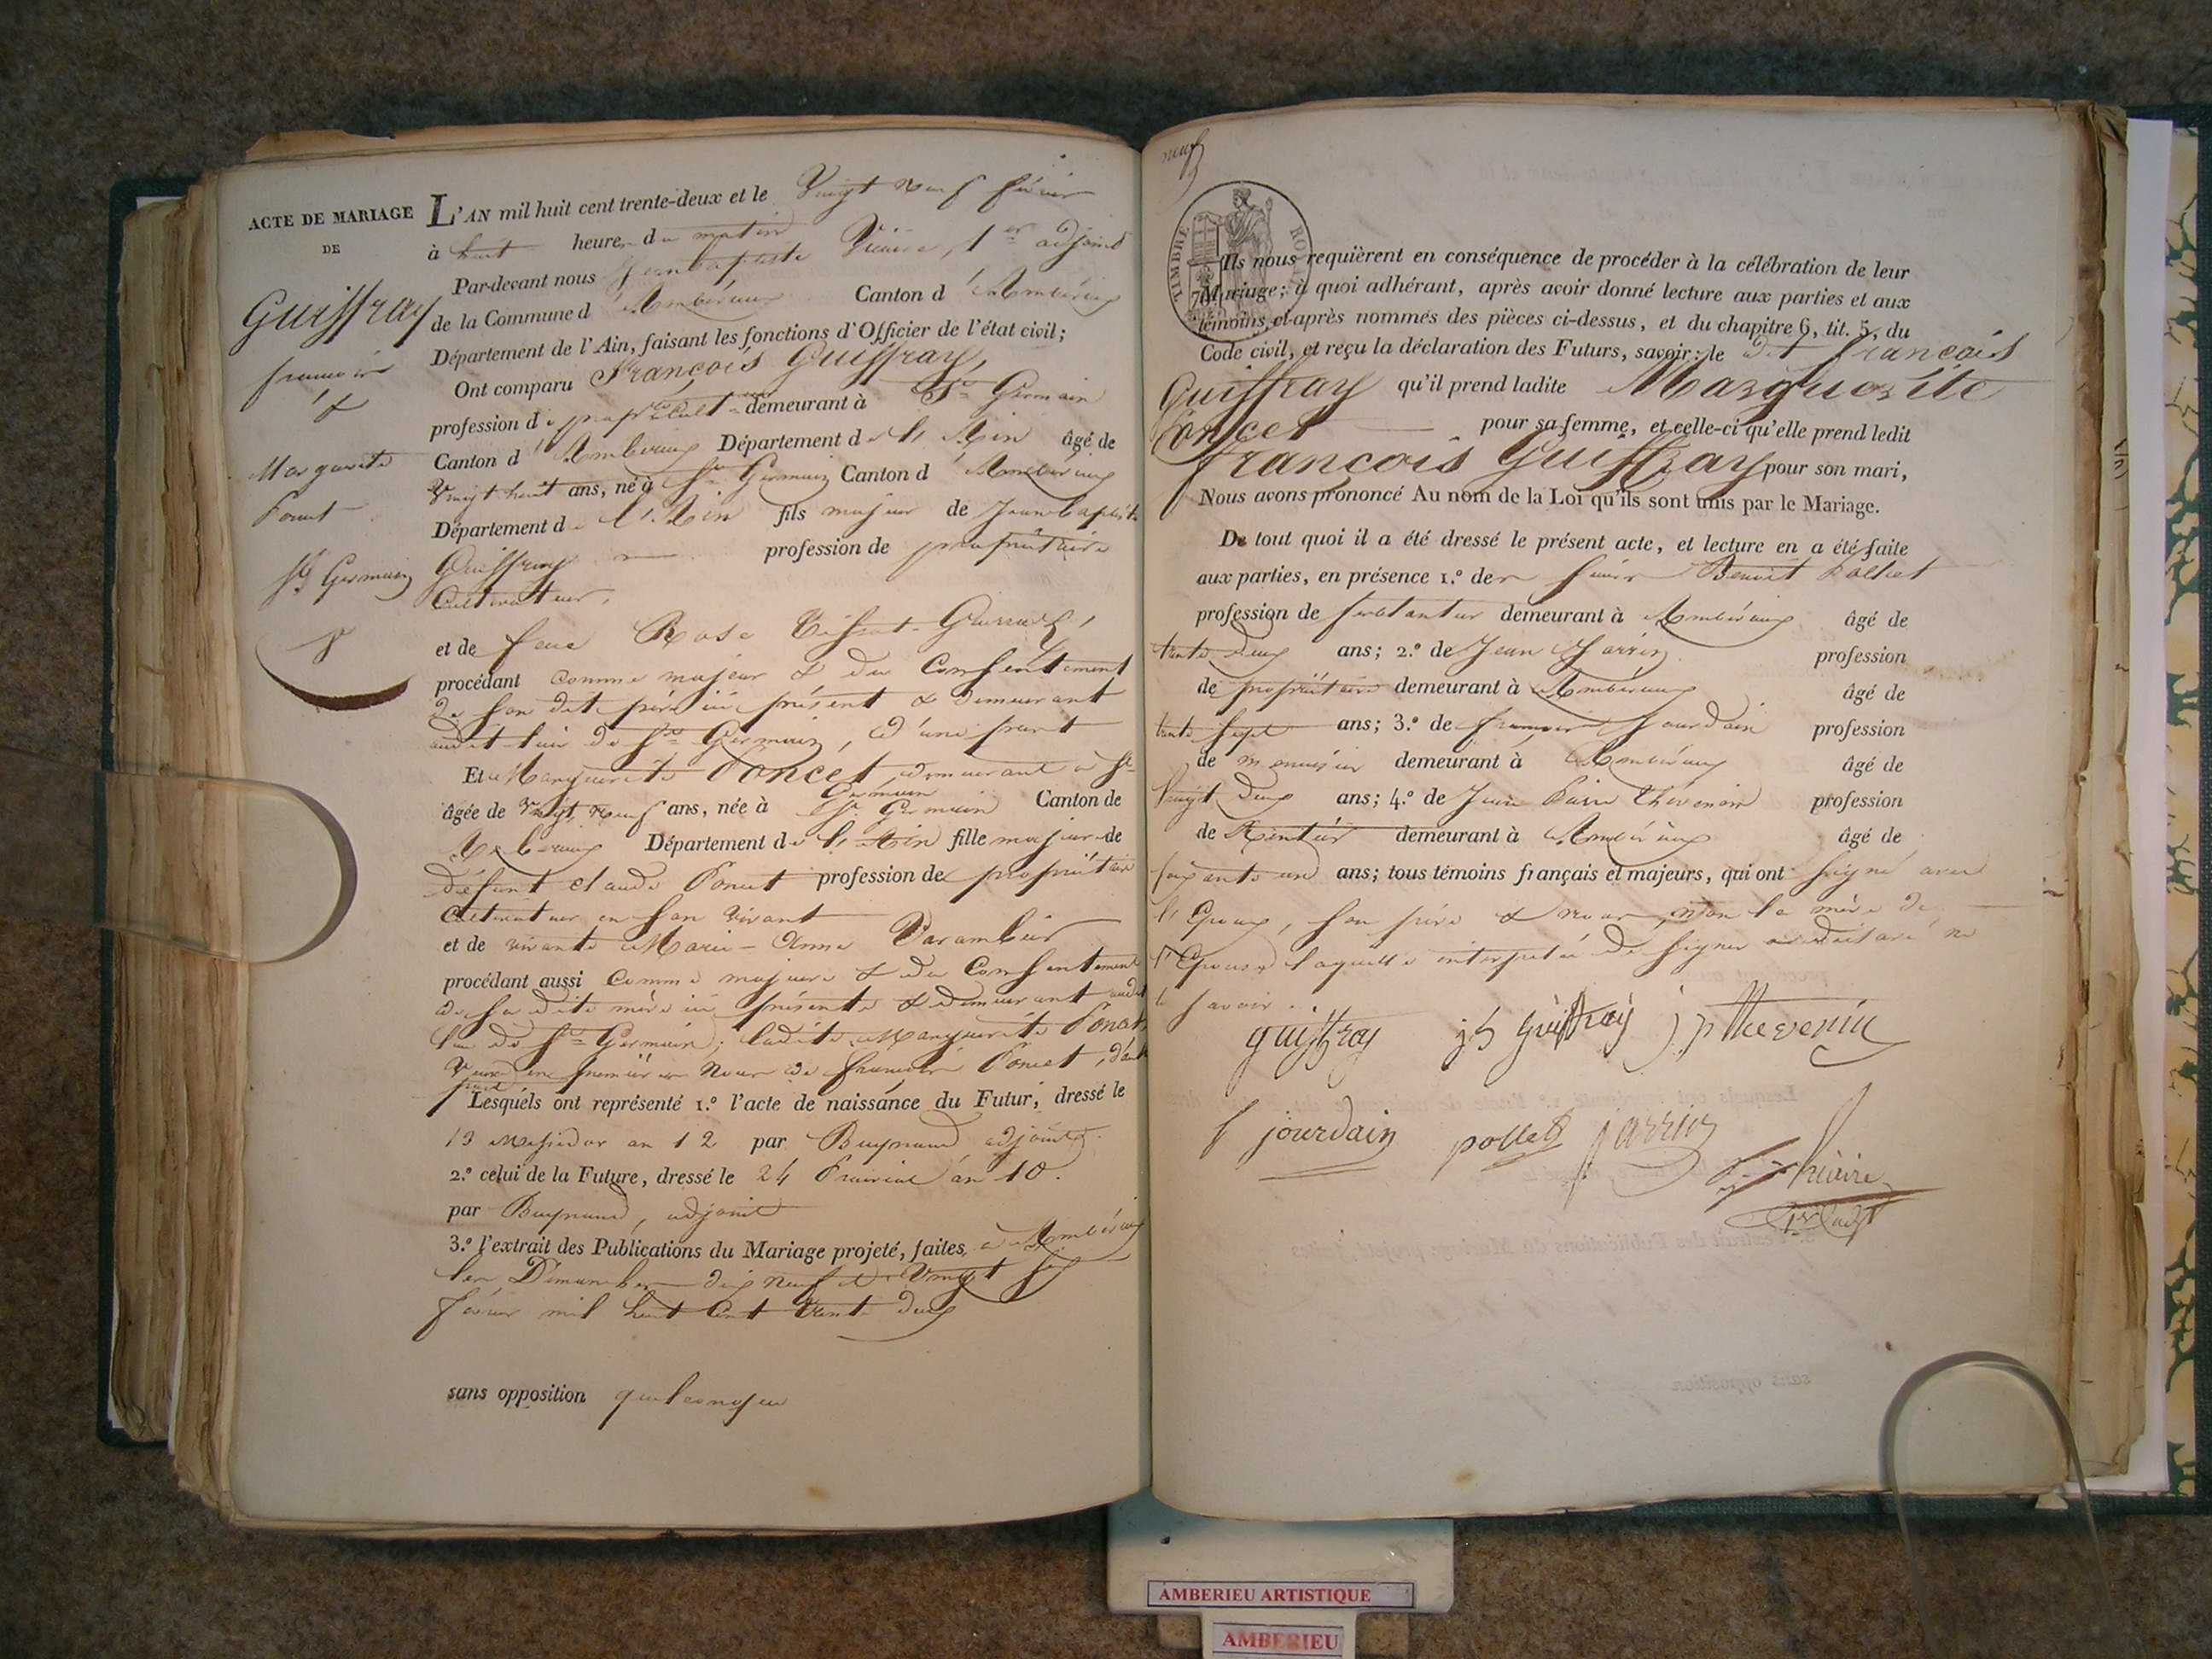 ACTE DE MARIAGE
DE
Guiffray
françois
&
Marguerite
Poncet
St Germain
8
L'AN mil huit cent trente-deux et le Vingt neuf février
à huit heures du matin
Par-devant nous Jean baptiste 1er adjoint
de la Commune d'Ambérieux Canton d'Ambérieux
Département de l'Ain, faisant les fonctions d'Officier de l'état civil;
Ont comparu François Guiffray,
profession de propre cultr demeurant à St Germain
Canton d'Ambérieux Département de l'Ain âgé de
Vingt huit ans, né à St Germain Canton d'Ambérieux
Département de l'Ain fils majeur de Jean baptiste
Guiffray profession de propriétaire
Cultivateur,
et de feue Rose
procédant comme majeur & du Consentement
de son dit père ici présent & demeurant
audit lieu de St Germain, d'une part
Et Marguerite Poncet, demeurant à St
Germain
âgée de Vingt neuf ans, née à St Germain Canton de
Département de l'Ain fille majeure de
défunt Claude Poncet profession de propriétaire
Cultivateur en son vivant
et de vivante Marie-Anne
procédant aussi Comme majeure & du Consentement
de sa dite mère ici présente & demeurant audit
lieu de St Germain; ladite Marguerite Poncet
Veuve en premières Noces de François Poncet, d'autre
part
Lesquels ont représenté 1.º l'acte de naissance du Futur, dressé le
13 Messidor an 12 par adjoint
2.º celui de la Future, dressé le 24 Prairial an 10.
par adjoint
3.º l'extrait des Publications du Mariage projeté, faites à Ambérieux
les Dimanches dix neuf et Vingt six
février mil huit Cent trente deux
sans opposition quelconque
neuf
TIMBRE RO
Ils nous requièrent en conséquence de procéder à la célébration de leur
Mariage; à quoi adhérant, après avoir donné lecture aux parties et aux
témoins ci-après nommés des pièces ci-dessus, et du chapitre 6, tit. 5, du
Code civil, et reçu la déclaration des Futurs, savoir: le dit François
Guiffray qu'il prend ladite Marguerite
Poncet pour sa femme, et celle-ci qu'elle prend ledit
François Guiffray pour son mari,
Nous avons prononcé Au nom de la Loi qu'ils sont unis par le Mariage.
De tout quoi il a été dressé le présent acte, et lecture en a été faite
aux parties, en présence 1.º des sieurs Benoit Pollet
profession de demeurant à Ambérieux âgé de
trente deux ans; 2.º de Jean Jarrin profession
de propriétaire demeurant à Ambérieux âgé de
trente sept ans; 3.º de françois Jourdain profession
de menuisier demeurant à Ambérieux âgé de
Vingt deux ans; 4.º de Jean Pierre Thévenin profession
de Rentier demeurant à Ambérieux âgé de
soixante un ans; tous témoins français et majeurs, qui ont signé avec
l'Epoux, son père & nous, non la mère de
l'Epouse laquelle interpelée de signer a déclaré ne
le savoir.
guiffray jb Guiffray jp thevenin
f jourdain pollet jarrin
1er adjt
AMBERIEU ARTISTIQUE
AMBERIEU